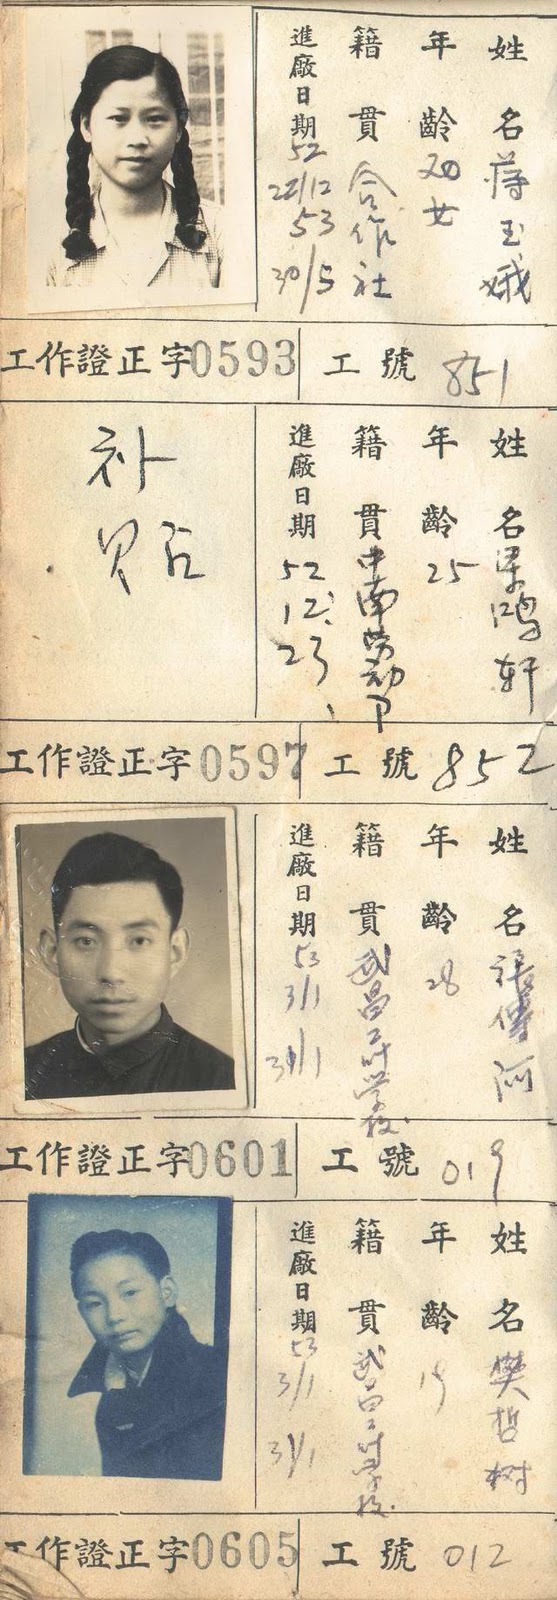 姓名 蒋玉娥
年齡 女
籍貫 合作社
進廠日期 52 22/12 53 30/5
工作證正字0593 工號 851
补
姓名 鸿轩
年齡 25
籍貫 中南劳动
進廠日期 52 12. 23
工作證正字0597 工號 852
姓名 張
年齡 28
籍貫 武昌 学校
進廠日期 53 3/1 31/1
工作證正字0601 工號 019
姓名 樊哲树
年齡 19
籍貫 武昌 学校
進廠日期 53 3/1 31/1
工作證正字0605 工號 012